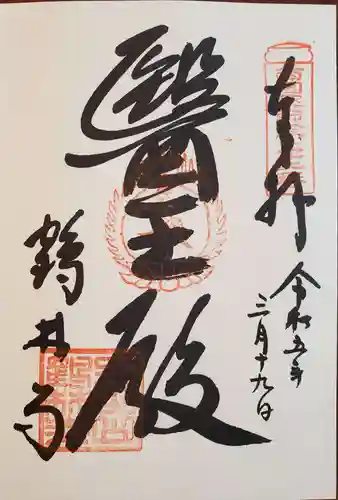 奉拝
令和五年
三月十九日
醫王殿
鶴林寺